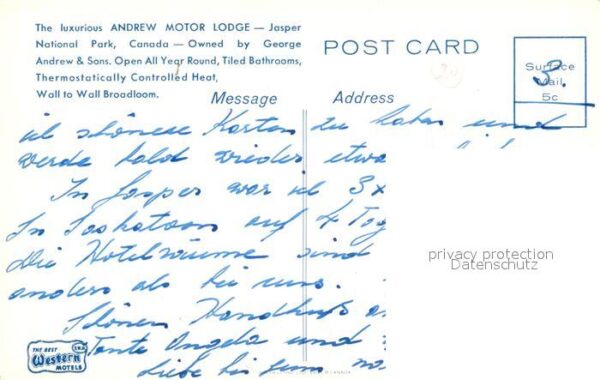 The luxurious ANDREW MOTOR LODGE — Jasper
National Park, Canada — Owned by George
Andrew & Sons. Open All Year Round, Tiled Bathrooms,
Thermostatically Controlled Heat,
Wall to Wall Broadloom.
POST CARD
Surface
Mail
5c
3.
Message
Address
ich schönere Karten zu haben und
werde bald wieder etwa
In Jasper war ich 3 x
In Saskatoon auf 4 Tag
Die Hotelräume sind
anders als bei uns.
Schönen Handkuß an
Tante Angela und
Liebe bis zum
privacy protection
Datenschutz
THE BEST
Western
MOTELS